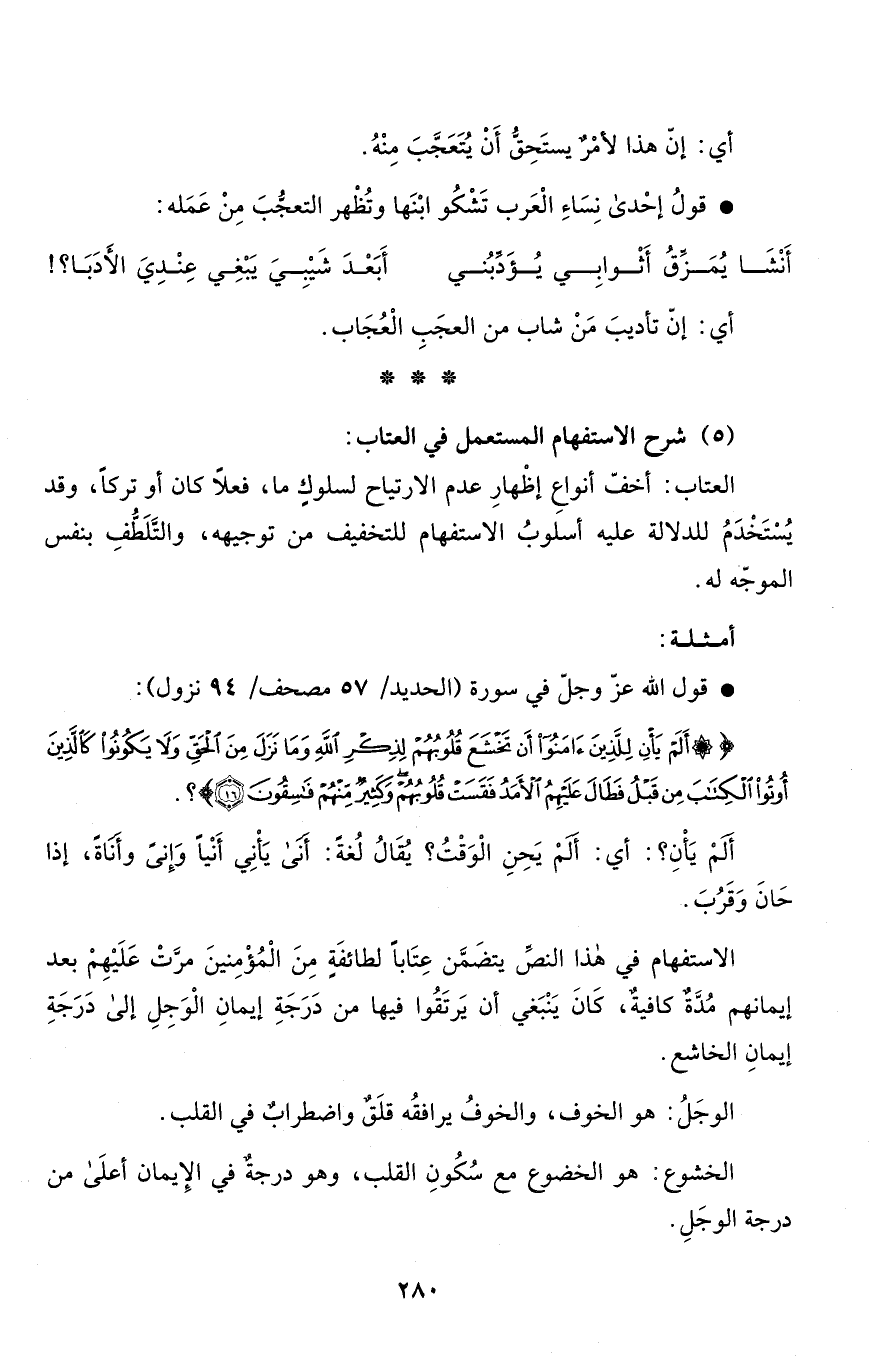 أي: إنّ هذا لأمْرٌ يستَحِقُّ أَنْ يُتَعَجَّبَ مِنْهُ.
● قولُ إحْدىٰ نِسَاءِ الْعَرب تَشْكُو ابْنَها وتُظْهر التعجُّبَ مِنْ عَمَله:
أَنْشَـا يُمَـزِّقُ أَثْـوابِـي يُـؤَدِّبُنـي أَبَعْـدَ شَيْبِـيَ يَبْغِـي عِنْـدِيَ الأَدَبَـا؟!
أي: إنّ تأديبَ مَنْ شاب من العجَبِ الْعُجَاب.
* * *
(٥) شرح الاستفهام المستعمل في العتاب:
العتاب: أخفّ أنواعِ إظْهارِ عدم الارتياح لسلوكٍ ما، فعلاً كان أو تركاً، وقد
يُسْتَخْدَمُ للدلالة عليه أسلوبُ الاستفهام للتخفيف من توجيهه، والتَّلَطُّفِ بنفس
الموجّه له.
أمـثـلـة:
● قول الله عزّ وجلّ في سورة (الحديد/ ٥٧ مصحف/ ٩٤ نزول):
﴿ ۞ أَلَمْ يَأْنِ لِلَّذِينَ ءَامَنُوٓا۟ أَن تَخْشَعَ قُلُوبُهُمْ لِذِكْرِ ٱللَّهِ وَمَا نَزَلَ مِنَ ٱلْحَقِّ وَلَا يَكُونُوا۟ كَٱلَّذِينَ
أُوتُوا۟ ٱلْكِتَٰبَ مِن قَبْلُ فَطَالَ عَلَيْهِمُ ٱلْأَمَدُ فَقَسَتْ قُلُوبُهُمْ ۖ وَكَثِيرٌ مِّنْهُمْ فَٰسِقُونَ ١٦ ﴾؟.
أَلَمْ يَأْنِ؟: أي: أَلَمْ يَحِنِ الْوَقْتُ؟ يُقَالُ لُغةً: أَنَىٰ يَأْنِي أَنْياً وَإِنىً وأَنَاةً، إذا
حَانَ وَقَرُبَ.
الاستفهام في هٰذا النصِّ يتضَمَّن عِتَاباً لطائفَةٍ مِنَ الْمُؤْمِنينَ مرَّتْ عَلَيْهِمْ بعد
إيمانهم مُدَّةٌ كافيةٌ، كَانَ يَنْبَغي أن يَرتَقُوا فيها من دَرَجَةِ إيمانِ الْوَجِلِ إلىٰ دَرَجَةِ
إيمانِ الخاشع.
الوجَلُ: هو الخوف، والخوفُ يرافقُه قلَقٌ واضطرابٌ في القلب.
الخشوع: هو الخضوع مع سُكُونِ القلب، وهو درجةٌ في الإيمان أعلَىٰ من
درجة الوجَلِ.
٢٨٠